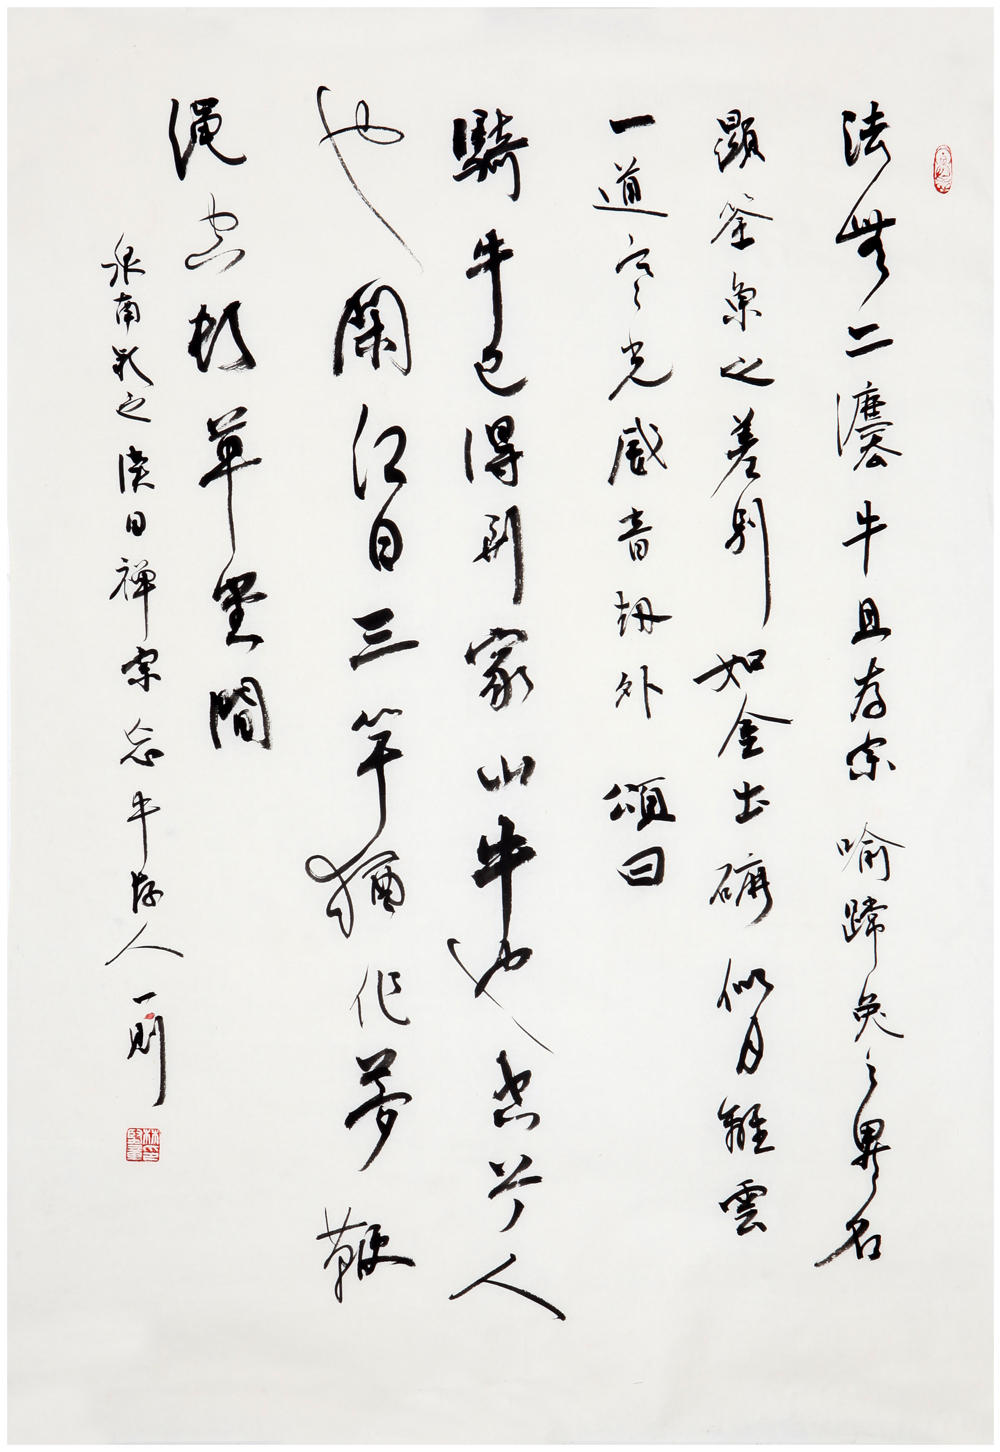 法無二灋牛且為宗喻蹄兔之異名
顯筌魚之差別如金出礦似月離雲
一道寒光威音劫外頌曰
騎牛已得到家山牛也空兮人
也閑紅日三竿猶作夢鞭
繩空頓草堂間
泉南 之 日禪宗忘牛存人一則